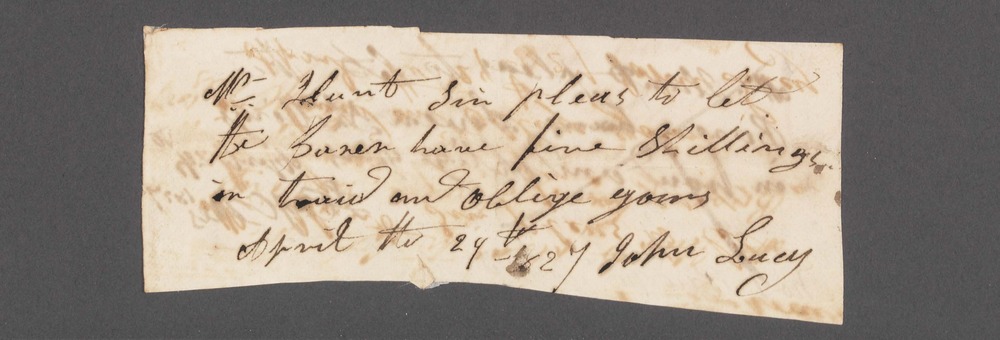 Mr Hunt Sir pleas to let
the barer have five Shillings
in traid and oblige yours
April the 29th 1827 John Lucy